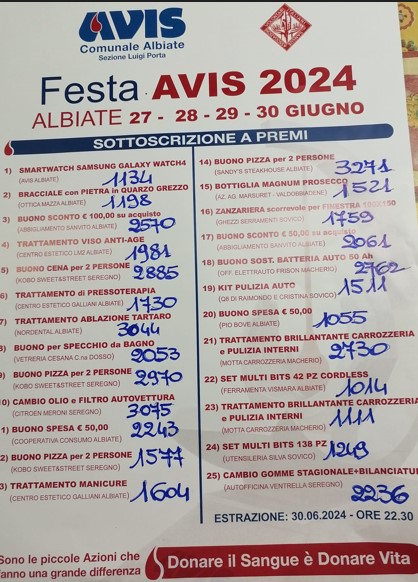 AVIS
Comunale Albiate
Sezione Luigi Porta
Festa AVIS 2024
ALBIATE 27 - 28 - 29 - 30 GIUGNO
SOTTOSCRIZIONE A PREMI
1) SMARTWATCH SAMSUNG GALAXY WATCH4
(AVIS ALBIATE) 1134
2) BRACCIALE con PIETRA in QUARZO GREZZO
(OTTICA MAZZA ALBIATE) 1198
3) BUONO SCONTO € 100,00 su acquisto
(ABBIGLIAMENTO SANVITO ALBIATE) 2570
4) TRATTAMENTO VISO ANTI-AGE
(CENTRO ESTETICO LM2 ALBIATE) 1981
5) BUONO CENA per 2 PERSONE
(KOBO SWEET&STREET SEREGNO) 2885
6) TRATTAMENTO di PRESSOTERAPIA
(CENTRO ESTETICO GALLIANI ALBIATE) 1730
7) TRATTAMENTO ABLAZIONE TARTARO
(NORDENTAL ALBIATE) 3044
8) BUONO per SPECCHIO da BAGNO
(VETRERIA CESANA C.na DOSSO) 2053
9) BUONO PIZZA per 2 PERSONE
(KOBO SWEET&STREET SEREGNO) 2970
0) CAMBIO OLIO e FILTRO AUTOVETTURA
(CITROEN MERONI SEREGNO) 3075
1) BUONO SPESA € 50,00
(COOPERATIVA CONSUMO ALBIATE) 2243
2) BUONO PIZZA per 2 PERSONE
(KOBO SWEET&STREET SEREGNO) 1577
3) TRATTAMENTO MANICURE
(CENTRO ESTETICO GALLIANI ALBIATE) 1604
14) BUONO PIZZA per 2 PERSONE
(SANDY'S STEAKHOUSE ALBIATE) 3271
15) BOTTIGLIA MAGNUM PROSECCO
(AZ. AG. MARSURET - VALDOBBIADENE) 1521
16) ZANZARIERA scorrevole per FINESTRA 100X150
(GHEZZI SERRAMENTI SOVICO) 1759
17) BUONO SCONTO € 50,00 su acquisto
(ABBIGLIAMENTO SANVITO ALBIATE) 2061
18) BUONO SOST. BATTERIA AUTO 50 Ah
(OFF. ELETTRAUTO FRISON MACHERIO) 2762
19) KIT PULIZIA AUTO
(Q8 DI RAIMONDO E CRISTINA SOVICO) 1511
20) BUONO SPESA € 50,00
(PIO BOVE ALBIATE) 1055
21) TRATTAMENTO BRILLANTE CARROZZERIA
e PULIZIA INTERNI
(MOTTA CARROZZERIA MACHERIO) 2730
22) SET MULTI BITS 42 PZ CORDLESS
(FERRAMENTA VISMARA ALBIATE) 1014
23) TRATTAMENTO BRILLANTE CARROZZERIA
e PULIZIA INTERNI
(MOTTA CARROZZERIA MACHERIO) 1111
24) SET MULTI BITS 138 PZ
(UTENSILERIA SILVA SOVICO) 1249
25) CAMBIO GOMME STAGIONALE+BILANCIATU
(AUTOFFICINA VENTRELLA SEREGNO) 2236
ESTRAZIONE: 30.06.2024 - ORE 22.30
Sono le piccole Azioni che
fanno una grande differenza
Donare il Sangue è Donare Vita